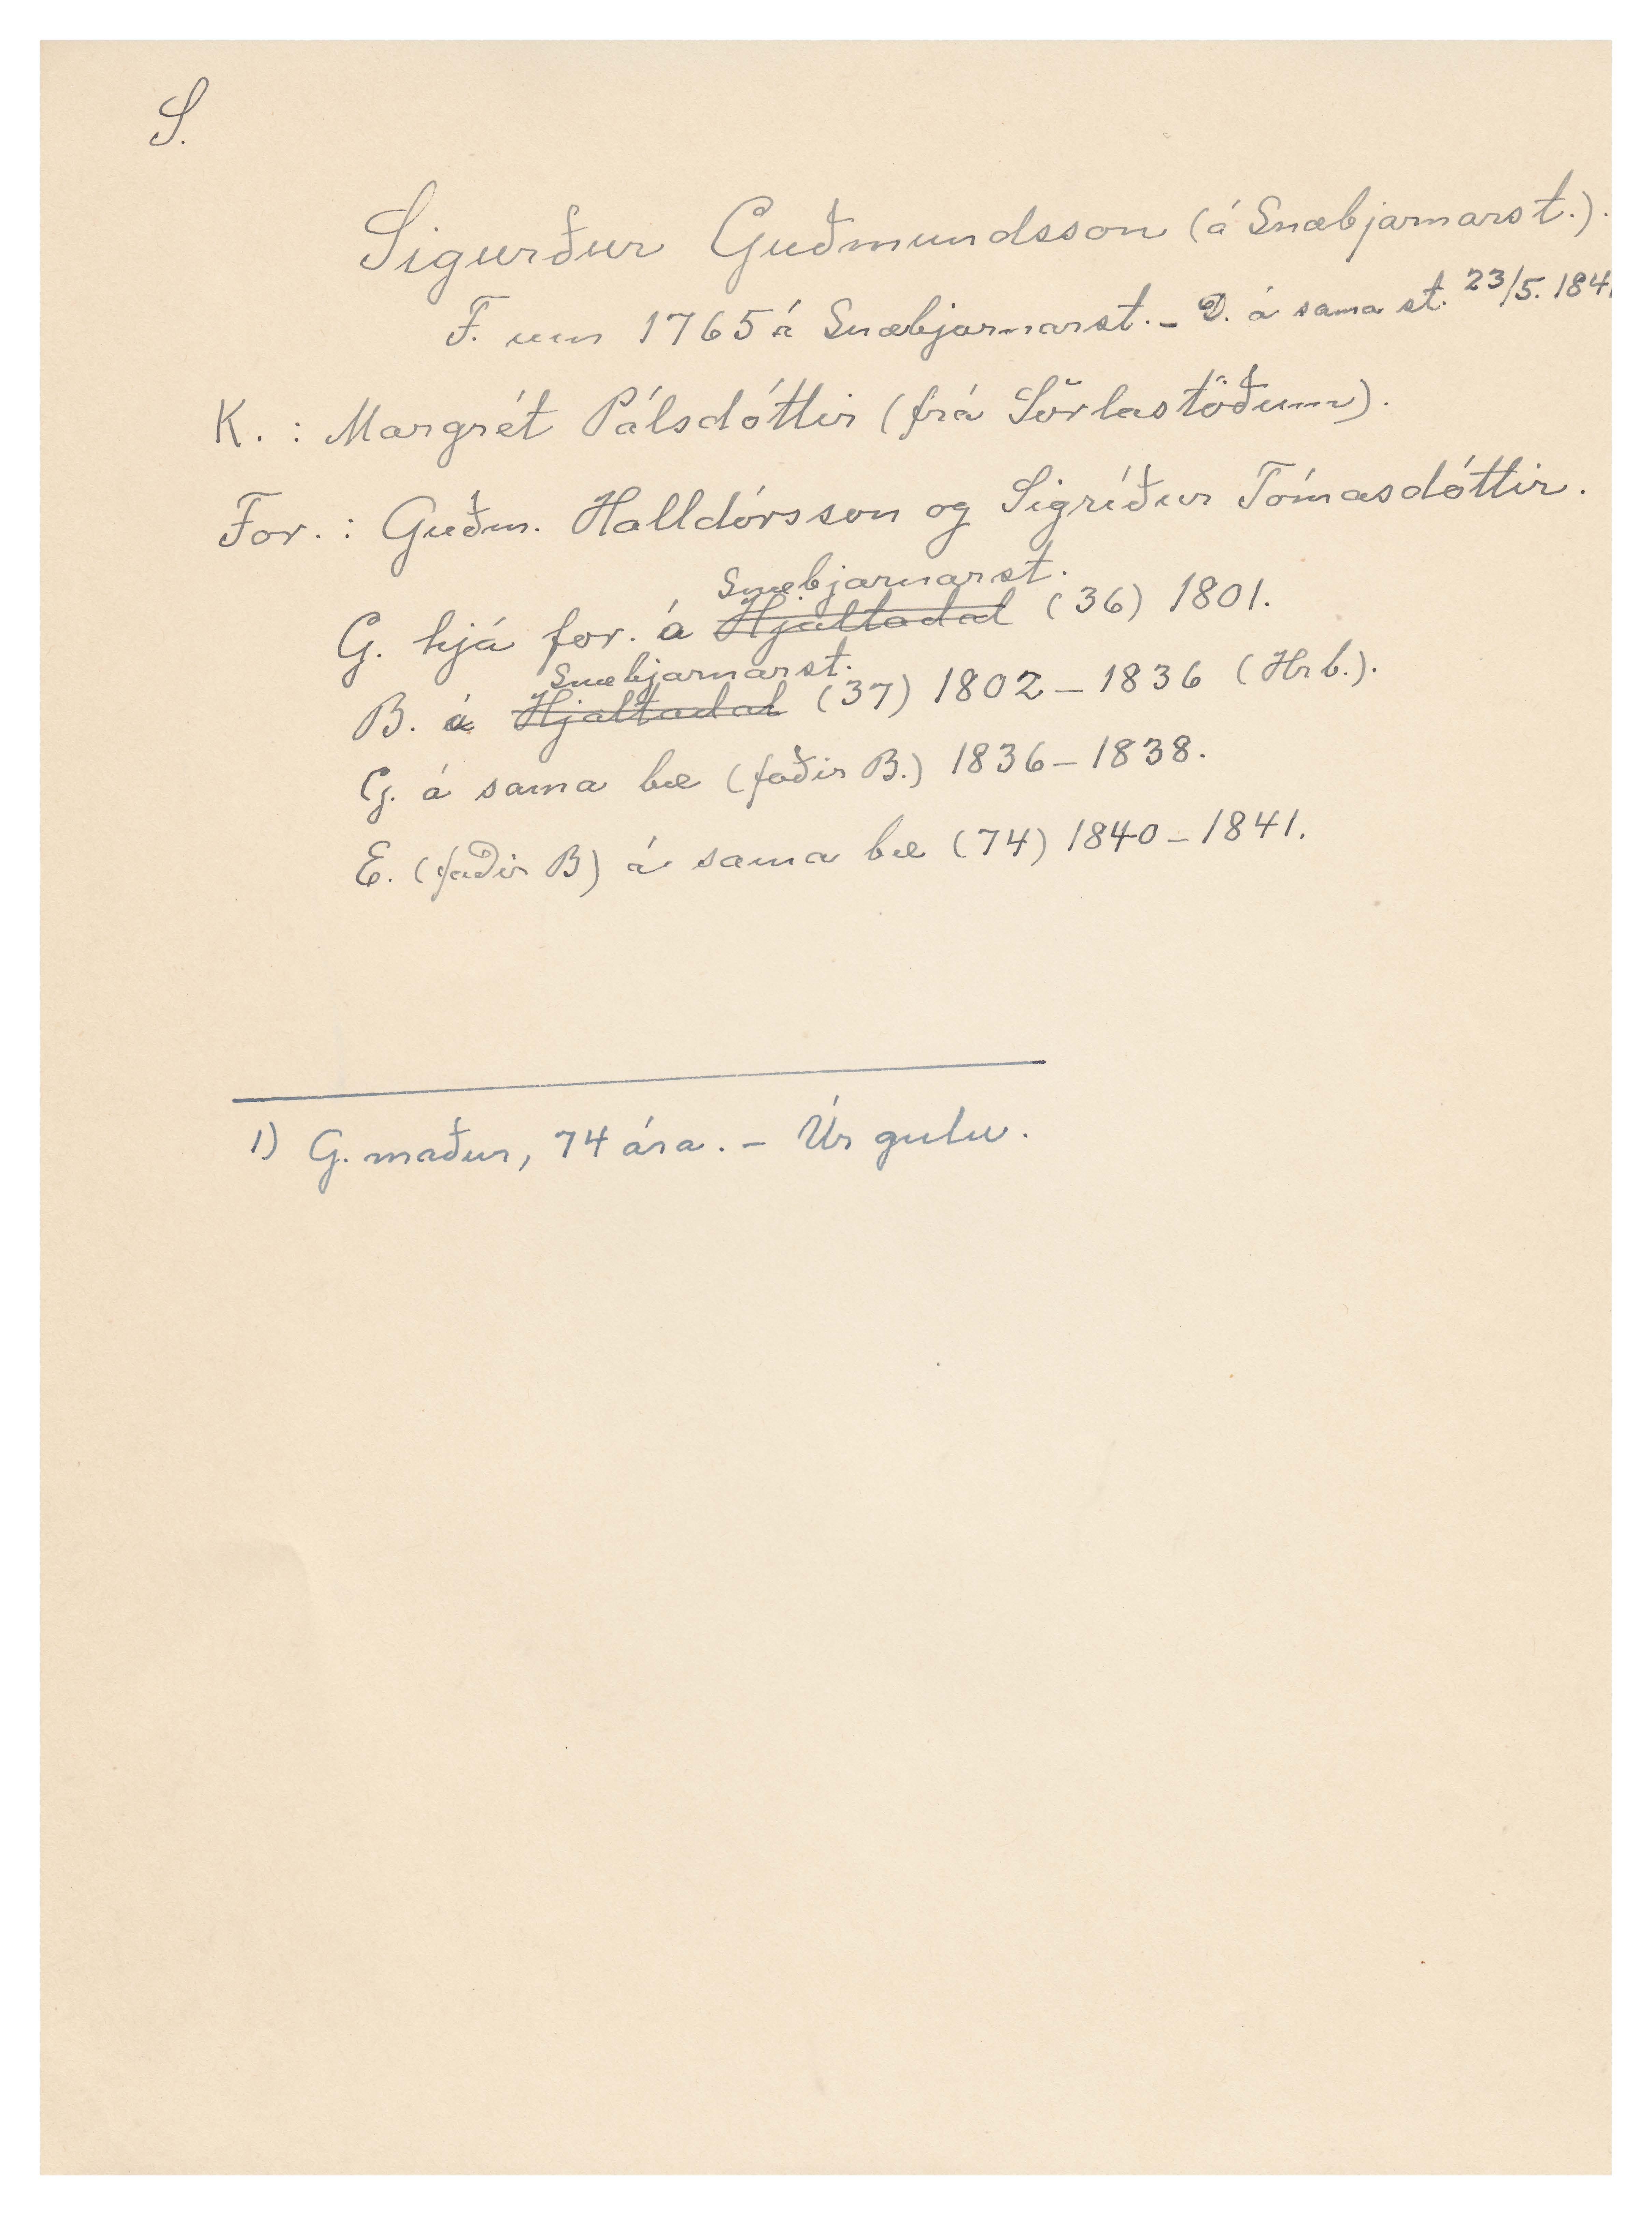 S.
Sigurður Guðmundsson (á Snæbjarnarst.).
F. um 1765 á Snæbjarnarst. - D. á sama st. 23/5. 1841
K. : Margrét Pálsdóttir (frá Sörlastöðum).
For. : Guðm. Halldórsson og Sigríður Tómasdóttir.
Snæbjarnarst.
G. hjá for. á Hjaltadal (36) 1801.
Snæbjarnarst.
B. á Hjaltadal (37) 1802 - 1836 (Hrb.).
G. á sama bæ (faðir B.) 1836 - 1838.
E. (faðir B) á sama bæ (74) 1840 - 1841.
1) G. maður, 74 ára. - Úr gulu.